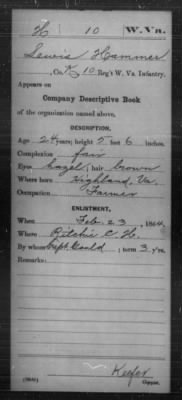 H 10 W. Va.
Lewis Hammer
Co. K, 10 Reg't W. Va. Infantry.
Appears on
Company Descriptive Book
of the organization named above.
DESCRIPTION.
Age 24 years; height 5 feet 6 inches.
Complexion fair
Eyes hazel; hair brown
Where born Highland, Va.
Occupation Farmer
ENLISTMENT.
When Feb. 23, 1864.
Where Ritchie C. H.
By whom Capt. Gould; term 3 y'rs.
Remarks:
Keefer
Copyist.